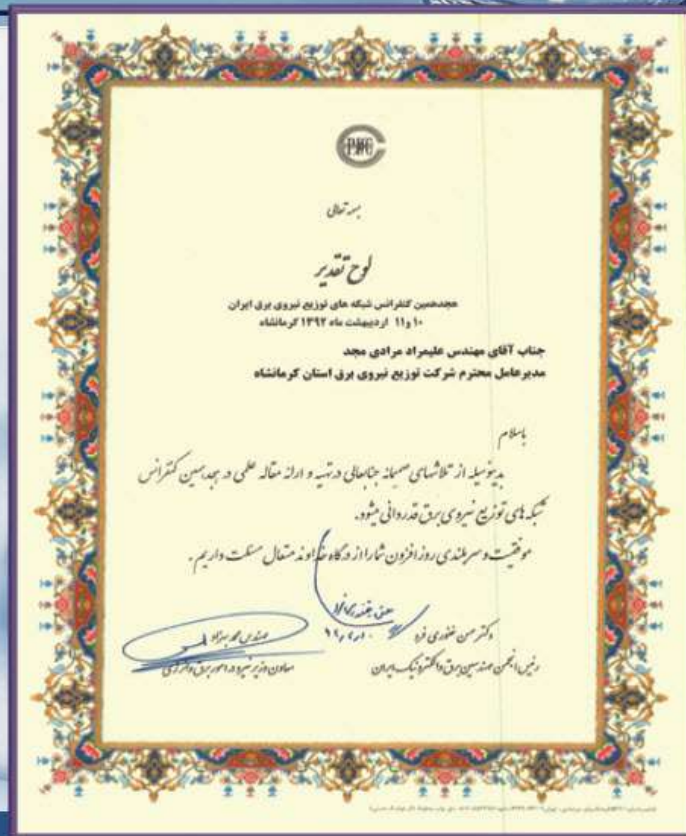 بسمه تعالی
لوح تقدیر
هجدهمین کنفرانس شبکه های توزیع نیروی برق ایران
۱۰ و ۱۱ اردیبهشت ماه ۱۳۹۲ کرمانشاه
جناب آقای مهندس علیمراد مرادی مجد
مدیرعامل محترم شرکت توزیع نیروی برق استان کرمانشاه
باسلام
بدینوسیله از تلاشهای صمیمانه جنابعالی در تهیه و ارائه مقاله علمی در هجدهمین کنفرانس
شبکه های توزیع نیروی برق قدردانی میشود.
موفقیت و سربلندی روزافزون شما را از درگاه خداوند متعال مسئلت داریم.
دکتر
مهندس
رئیس انجمن مهندسین برق و الکترونیک ایران
معاون وزیر نیرو در امور برق و انرژی